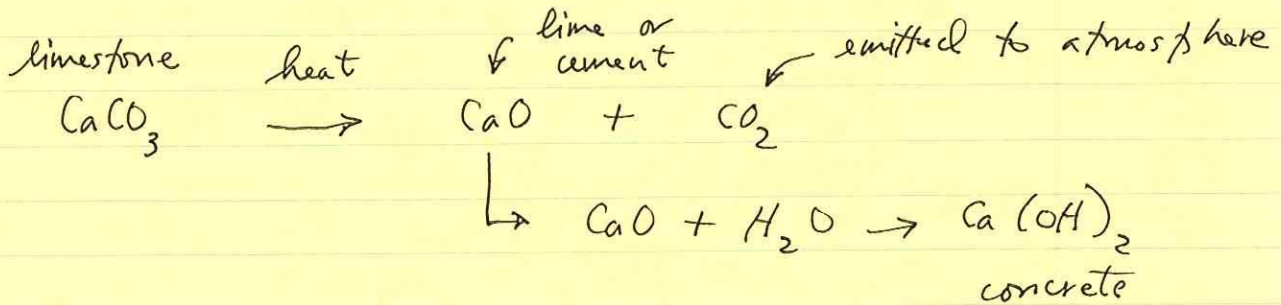 lime or
limestone heat cement emitted to atmosphere
CaCO₃ → CaO + CO₂
↳ CaO + H₂O → Ca(OH)₂
concrete